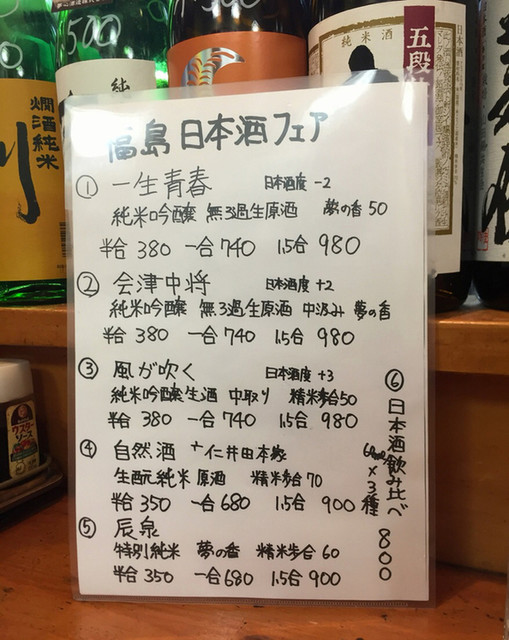 500
純
燗酒純米
純米酒
五段
日本酒
福島 日本酒フェア
① 一生青春 日本酒度 -2
純米吟醸 無ろ過生原酒 夢の香 50
半合 380 一合 740 1.5合 980
② 会津中将 日本酒度 +2
純米吟醸 無ろ過生原酒 中汲み 夢の香
半合 380 一合 740 1.5合 980
③ 風が吹く 日本酒度 +3
純米吟醸生酒 中取り 精米歩合50
半合 380 一合 740 1.5合 980
④ 自然酒 ナ仁井田本家
生酛純米 原酒 精米歩合 70
半合 350 一合 680 1.5合 900
⑤ 辰泉
特別純米 夢の香 精米歩合 60
半合 350 一合 680 1.5合 900
⑥ 日本酒飲み比べ 800
60ml×3種
ウスターソース